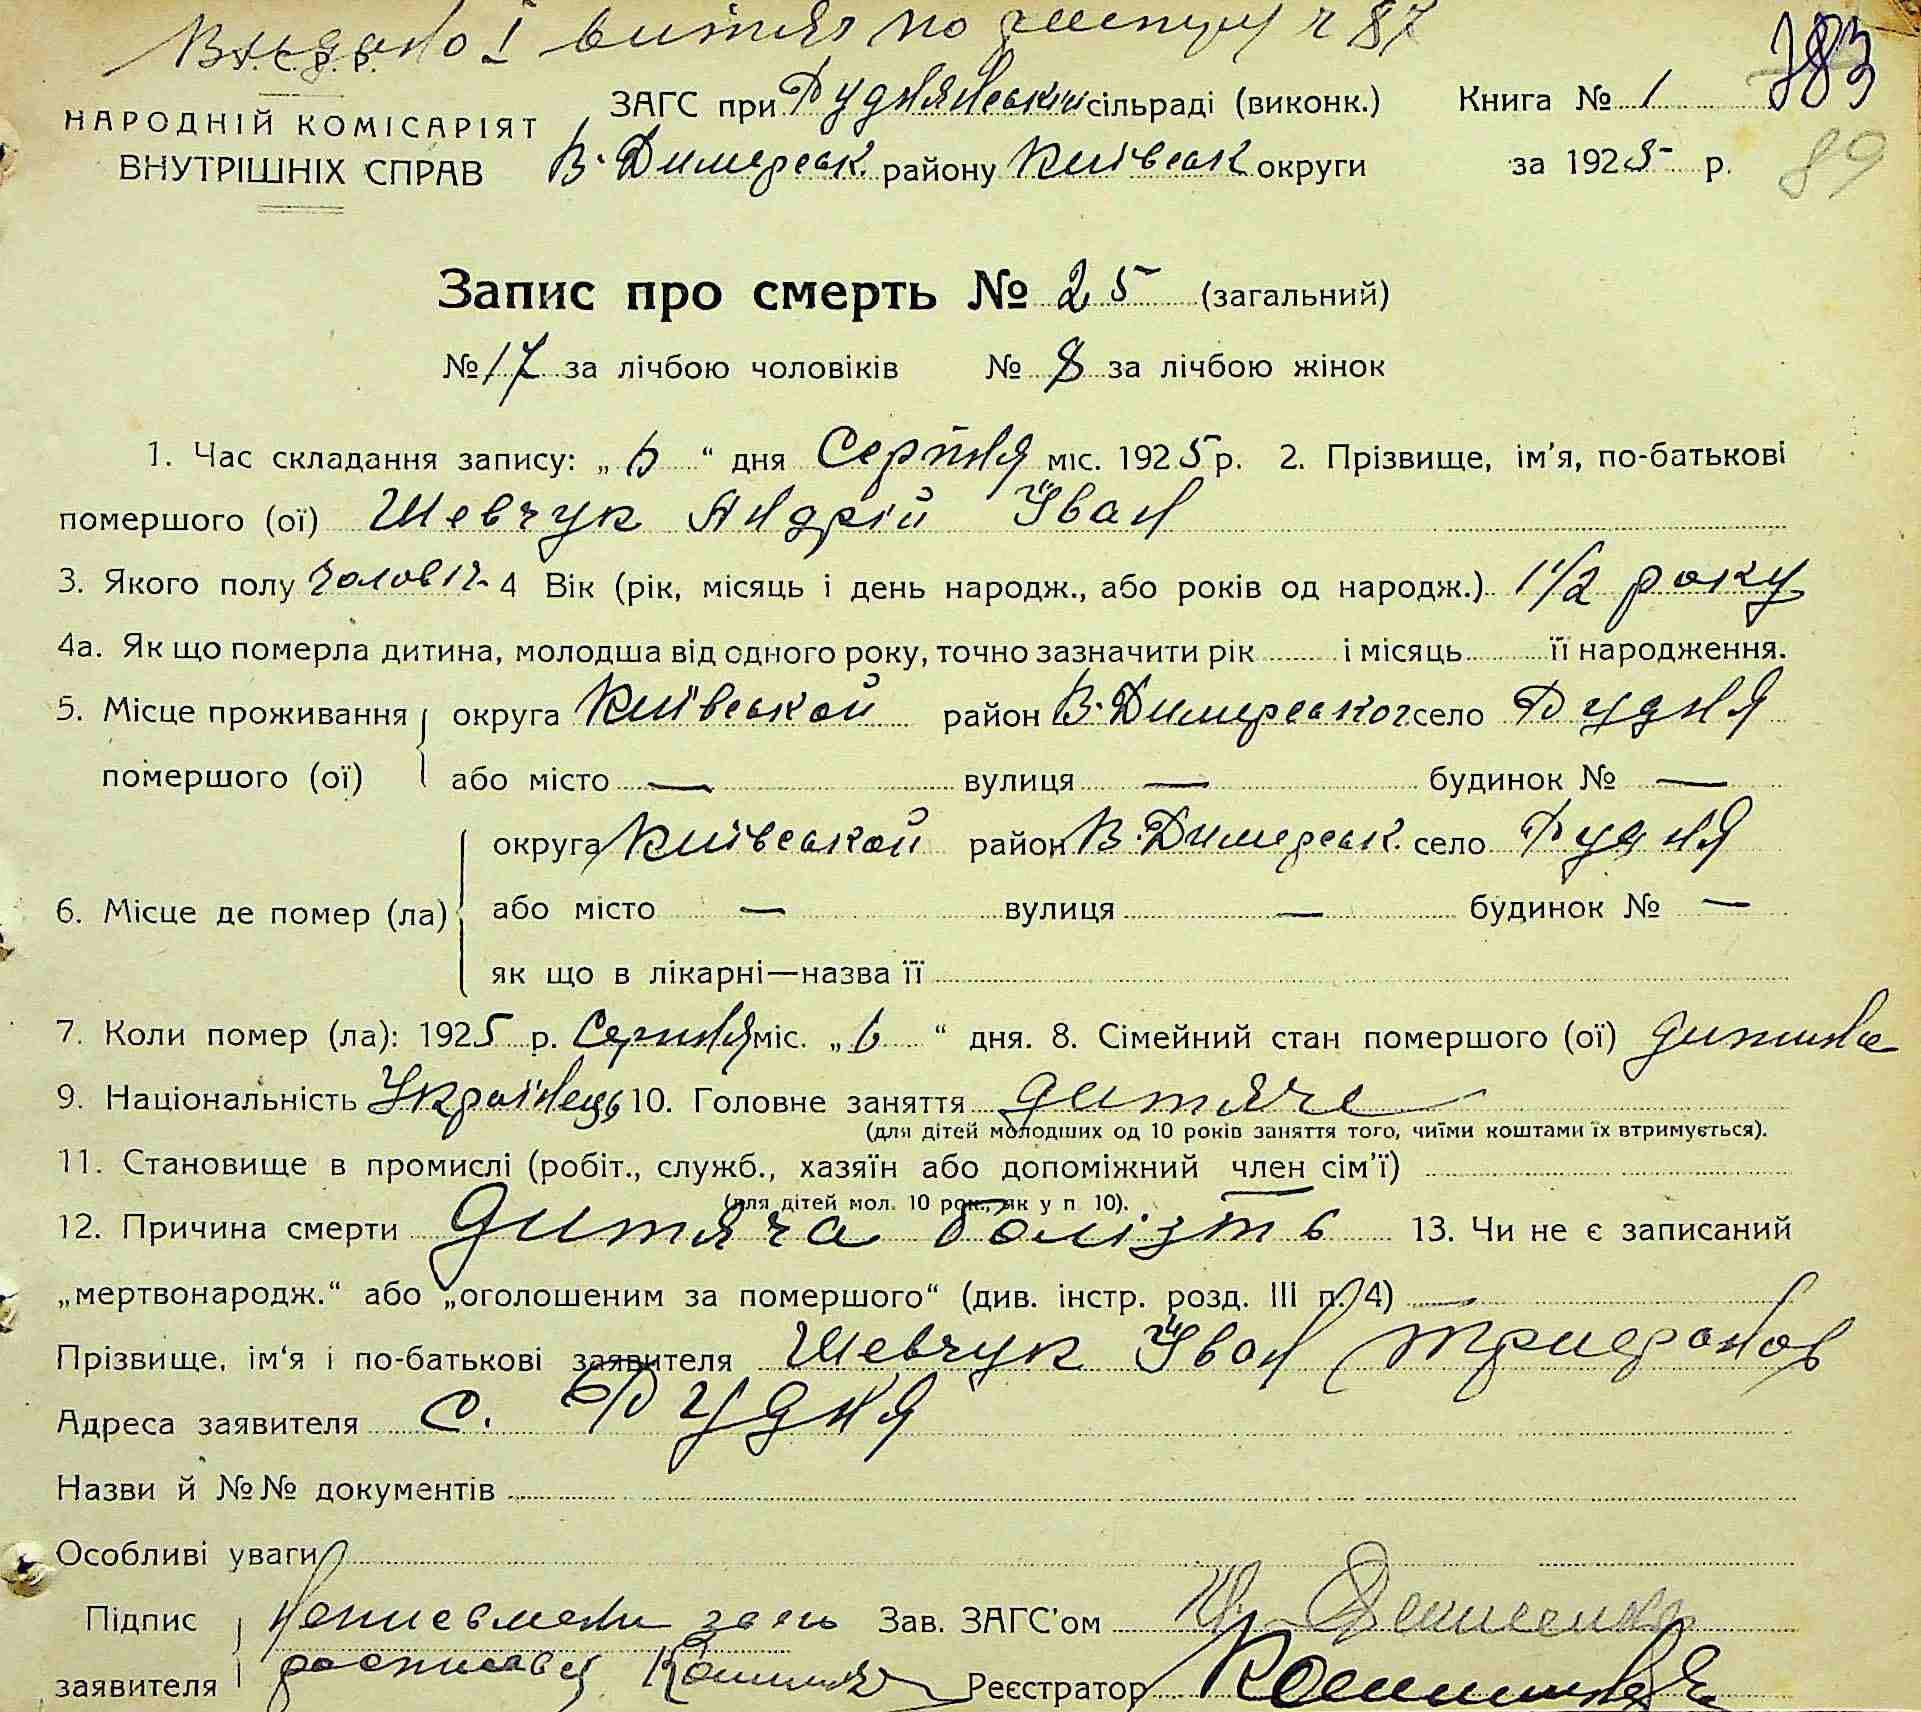 Видано І витяг по реєстру ч 87
У. С. Р. Р. 183
НАРОДНІЙ КОМІСАРІЯТ ЗАГС при Руднянський сільраді (виконк.) Книга № 1
ВНУТРІШНІХ СПРАВ В. Димерськ. району Київськ округи за 1925 р. 89
Запис про смерть № 25 (загальний)
№ 17 за лічбою чоловіків № 8 за лічбою жінок
1. Час складання запису: „ 6 “ дня Серпня міс. 1925 р. 2. Прізвище, ім'я, по-батькові
помершого (ої) Шевчук Андрій Іван
3. Якого полу Чоловіч. 4 Вік (рік, місяць і день народж., або років од народж.) 1 1/2 року
4а. Як що померла дитина, молодша від одного року, точно зазначити рік і місяць її народження.
5. Місце проживання округа Київськой район В. Димерського село Рудня
помершого (ої) або місто — вулиця — будинок № —
округа Київськой район В. Димерськ. село Рудня
6. Місце де помер (ла) або місто — вулиця — будинок № —
як що в лікарні—назва її
7. Коли помер (ла): 1925 р. Серпня міс. „ 6 “ дня. 8. Сімейний стан помершого (ої) дитина
9. Національність Українець 10. Головне заняття дитяче
(для дітей молодших од 10 років заняття того, чиїми коштами їх втримується).
11. Становище в промислі (робіт., служб., хазяїн або допоміжний член сім'ї)
(для дітей мол. 10 рок., як у п 10).
12. Причина смерти Дитяча болізть 13. Чи не є записаний
„мертвонародж.“ або „оголошеним за помершого“ (див. інстр. розд. III п. 4) —
Прізвище, ім'я і по-батькові заявителя Шевчук Іван Трифонов
Адреса заявителя с. Рудня
Назви й №№ документів
Особливі уваги
Підпис неписьмени за його Зав. ЗАГС'ом
заявителя росписався Реєстратор